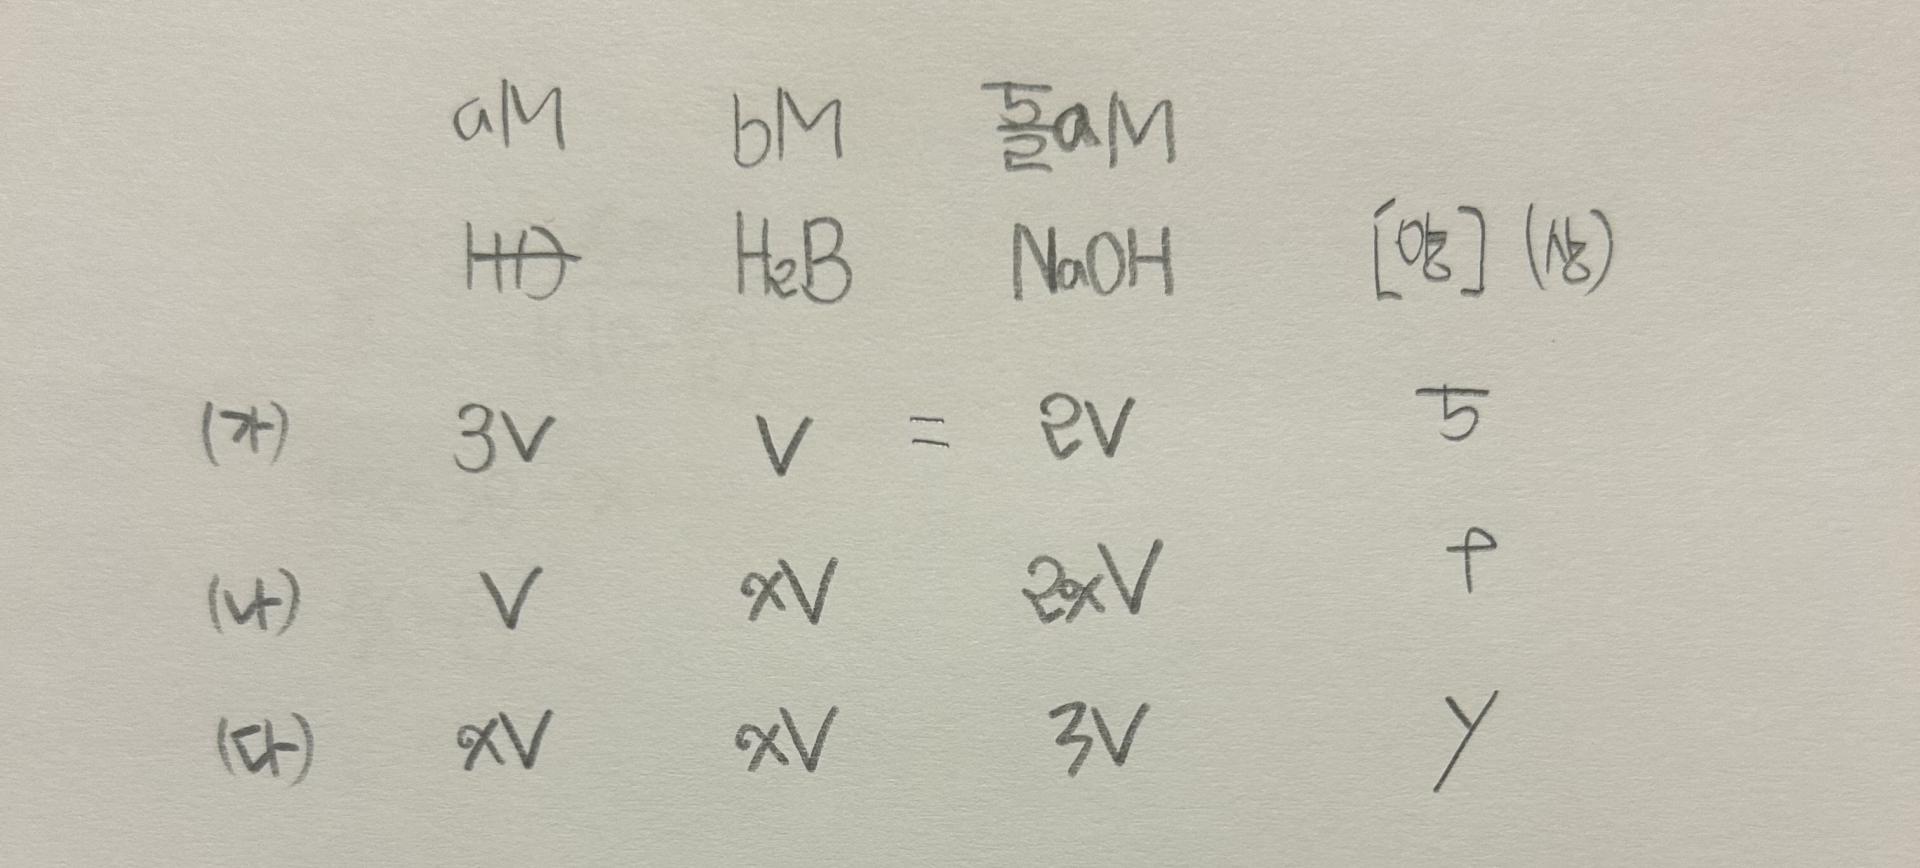 aM bM 5/2aM
HA H₂B NaOH [양] (상)
(가) 3V V = 2V 5
(나) V xV 2xV 9
(다) xV xV 3V y